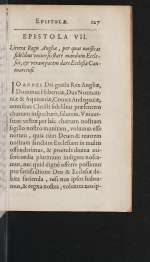 EPISTOLÆ 127
EPISTOLA VII.
Literæ Regis Angliæ, per quas mansfœat
fidelibus vniuersis statt mandatis Eccle-
siæ, & veram pacem dare Ecclesiæ Cantuariensi.
IOANNES Dei gratia Rex Angliæ,
Dominus Hiberniæ, Dux Normaniæ
& Aquitaniæ, Comes Andegauiæ,
omnibus Christi fidelibus præsentem
chartam inspecturis, salutem. Vniuer-
sitati vestræ per hanc chartam nostram
sigillo nostro munitam, volumus esse
notum, quia cùm Deum & matrem
nostram sanctam Ecclesiam in multis
offenderimus, & proinde diuina mi-
sericordia plurimum indigere nosca-
mur, nec quid dignè offerre possimus
pro satisfactione Deo & Ecclesiæ de-
bita facienda, nisi nos ipsos humilie-
mus, & regna nostra, volentes nos ip-